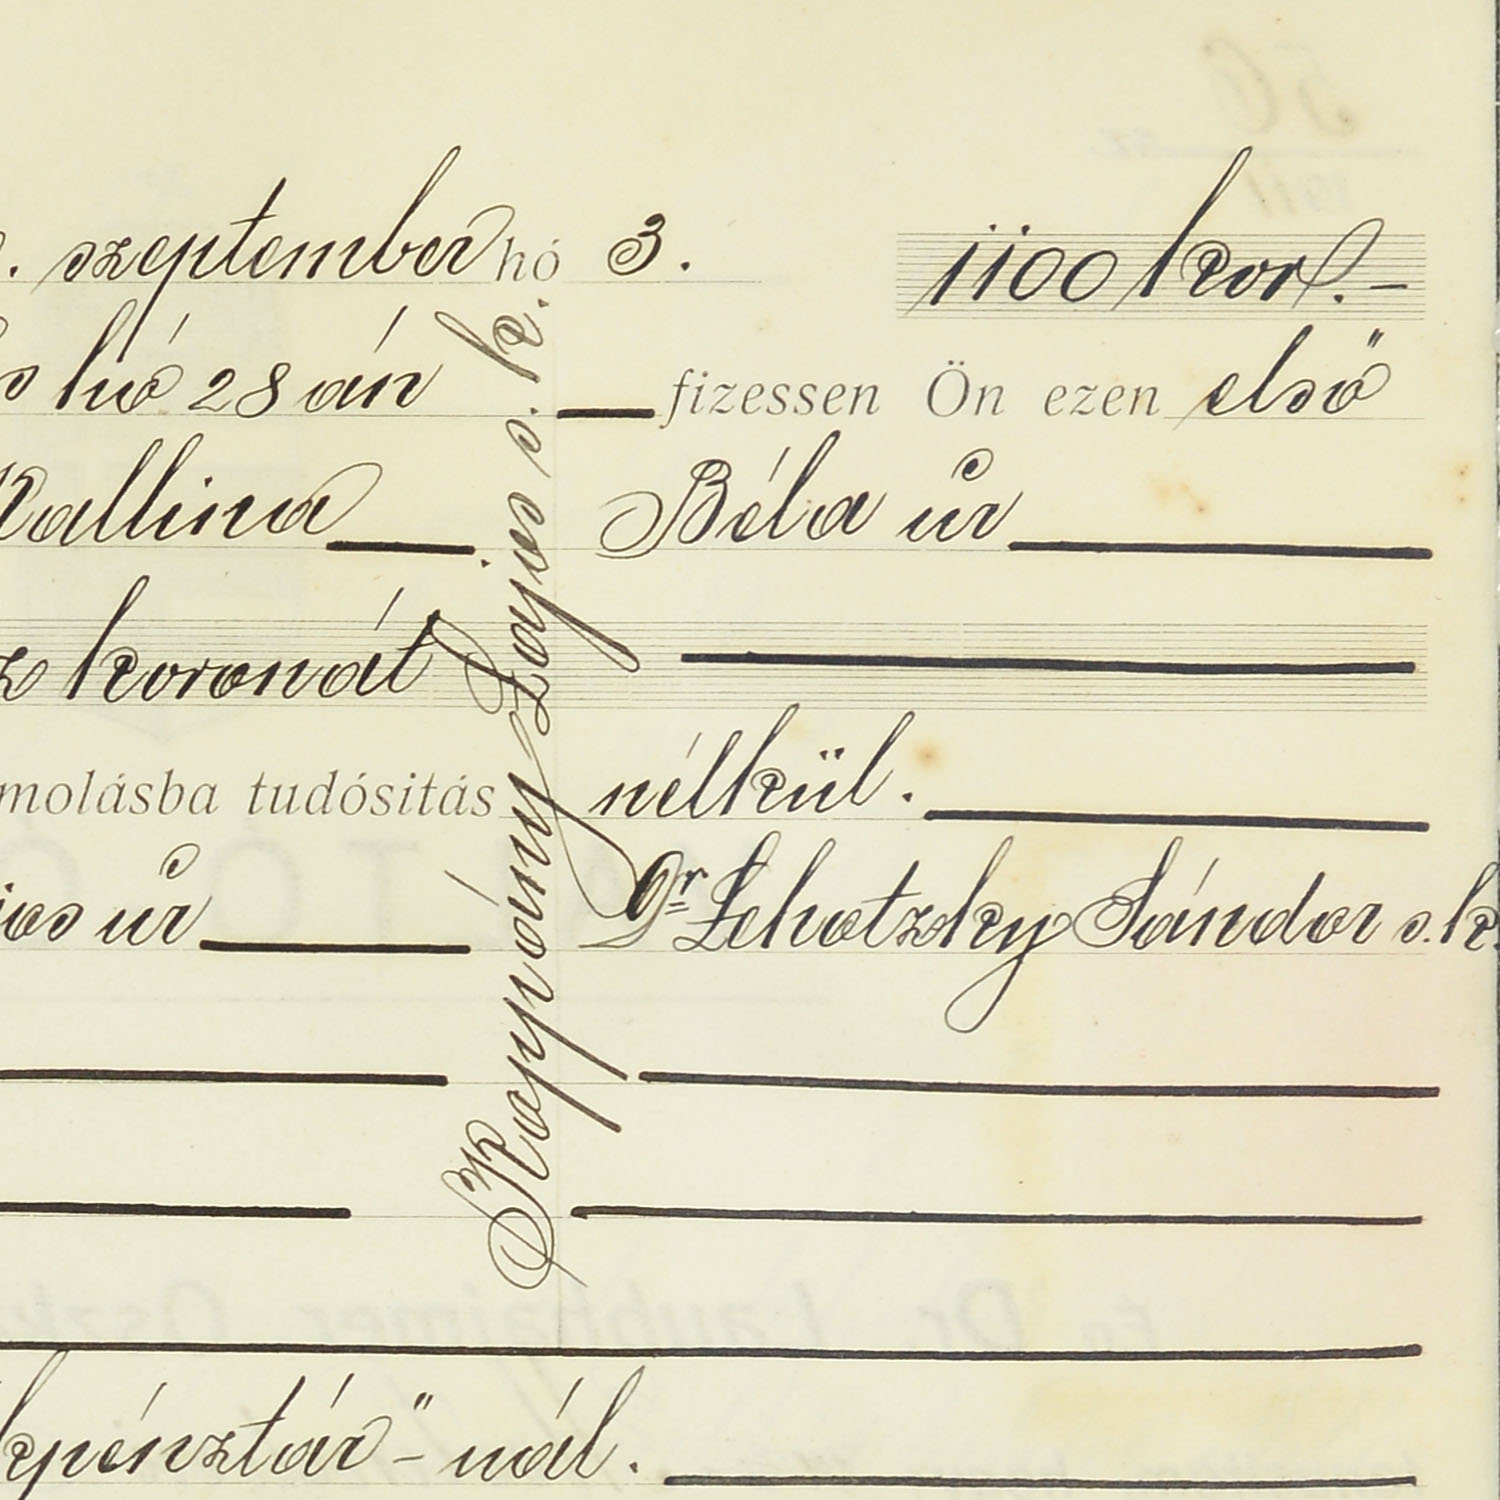 . szeptember hó 3. 1100 kor.–
hó 28 án fizessen Ön ezen első
Kallina Béla úr
koronát
molásba tudósitás nélkül.
úr Dr Lehotzky Sándor s.k.
Koppány Lajos s. k.
kpénztár" – nál.